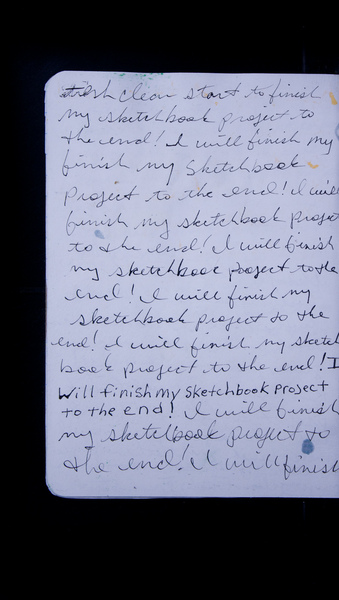 fresh clean start to finish
my sketchbook project to
the end! I will finish my
finish my sketchbook
project to the end! I will
finish my sketchbook project
to the end! I will finish
my sketchbook project to the
end! I will finish my
sketchbook project to the
end! I will finish my sketch
book project to the end! I
will finish my sketchbook project
to the end! I will finish
my sketchbook project to
the end! I will finish